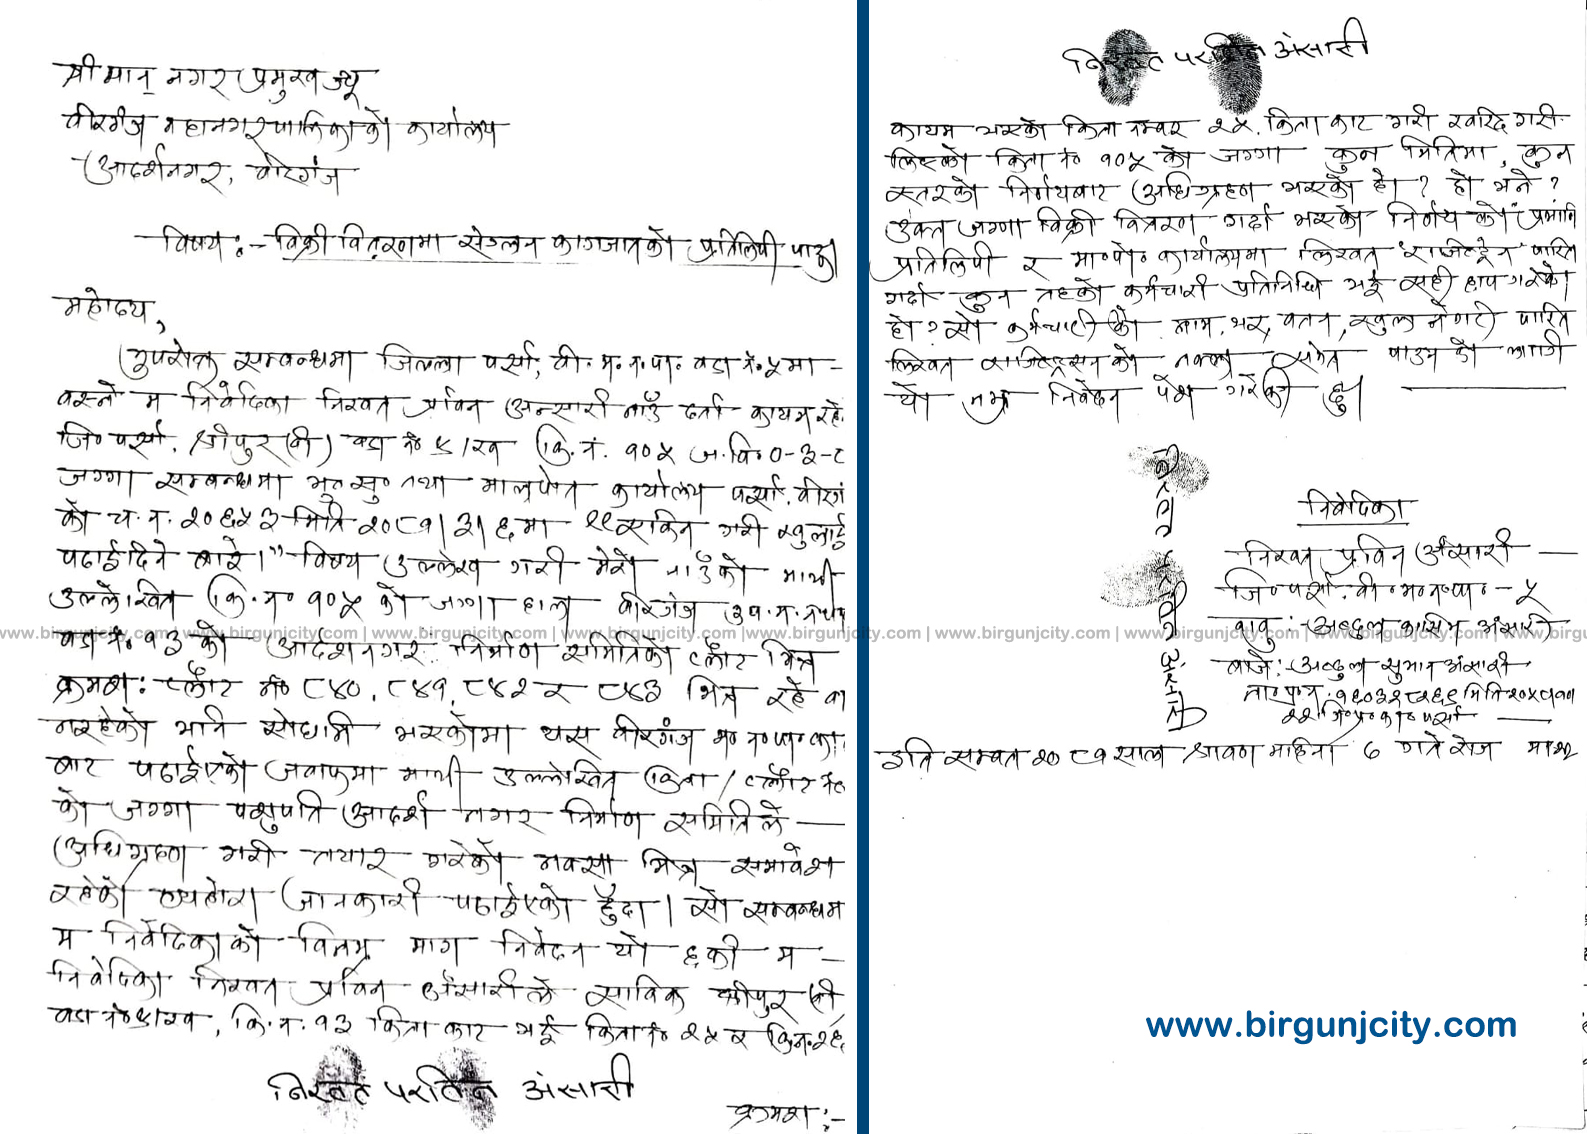 श्रीमान् नगर प्रमुख ज्यू
वीरगंज महानगरपालिकाको कार्यालय
आदर्शनगर, वीरगंज
विषय :- विक्री वितरणमा संलग्न कागजातको प्रतिलिपी पाऊँ
महोदय,
उपरोक्त सम्बन्धमा जिल्ला पर्सा, वी. म. न. पा. वडा नं. ५ मा -
बस्ने म निवेदिका निखत प्रविन अन्सारी नाउँ दर्ता कायम रहे
जि० पर्सा. श्रीपुर (वी) वडा नं० ४/ख कि. नं. १०५ ज. वि० ०-३-८
जग्गा सम्बन्धमा भू० सु० तथा मालपोत कार्यालय पर्सा. वीरगं
को च. नं. २०६५३ मिति २०८१।३।६ मा गरी खुलाई
पठाईदिने बारे।" विषय उल्लेख गरी मेरो नाउँको माथी
उल्लेखित कि. नं० १०५ को जग्गा हाल वीरगंज उ. प. म. न. पा.
वडा नं० १३ को आदर्शनगर निर्माण समितिको प्लौट भित्र
क्रमशः प्लौट नं० ८४०, ८४१, ८४२ र ८४३ भित्र रहे वा
नरहेको भनि सोधनी भएकोमा यस वीरगंज म० न० पा० का.
बाट पठाईएको जवाफमा माथी उल्लेखित कित्ता / प्लौट नं०
को जग्गा पशुपति आदर्श नगर निर्माण समितिले —
अधिग्रहण गरी तयार गरेको नक्सा भित्र समावेश
रहेको व्यहोरा जानकारी पठाईएको हुँदा। सो सम्बन्धमा
म निवेदिकाको विनम्र माग निवेदन यो छ की म -
निवेदिका निखत प्रविन अंसारीले साविक श्रीपुर (वी)
वडा नं० ४ख, कि. नं. १३ कित्ता काट भई कित्ता नं० २५ र कि. नं. २६
निखत परविन अंसारी
क्रमश :-
निखत परविन अंसारी
कायम भएको कित्ता नम्बर २५. कित्ता काट गरी खरिद गरी-
लिएको कित्ता नं० १०५ को जग्गा कुन मितिमा, कुन
स्तरको निर्णयबाट अधिग्रहण भएको हो? हो भने?
उक्त जग्गा विक्री वितरण गर्दा भएको निर्णय को प्रमाणि
प्रतिलिपी र मा० पो० कार्यालयमा लिखत राजिष्ट्रेन पारित
गर्दा कुन तहको कर्मचारी प्रतिनिधि भई सही छाप गरेको
हो? सो कर्मचारी को नाम, थर, वतन, खुल्ने गरी पारित
लिखत राजिष्ट्रेसन को नक्कल समेत पाउन को लागी
यो नम्र निवेदन पेश गरेकी छु।
निखत परविन अंसारी
निवेदिका
निखत प्रविन अंसारी —
जि० पर्सा. वी. म० न० पा० - ५
बाबु :- अब्दुल कासिम अंसारी
बाजे :- अब्दुल सुभान अंसारी
ना० प्र० प०
जि० प्र० का० पर्सा —
इति सम्वत २०८१ साल श्रावण महिना ७ गते रोज
www.birgunjcity.com | www.birgunjcity.com | www.birgunjcity.com | www.birgunjcity.com | www.birgunjcity.com | www.birgunjcity.com | www.birgunjcity.com | www.birgunjcity.com | www.birgunjcity.com
www.birgunjcity.com